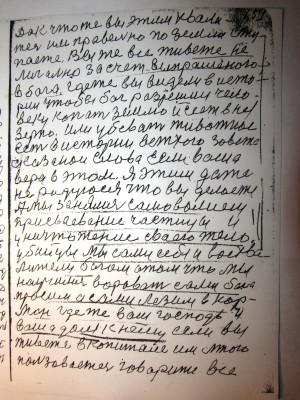 Дак что те вы этим хвали
тес им правелно по земли сту
паете. Вы же все живете не
лигално за счет выпрашеного
в бога, где те вы видели в исто
рии чтобы бог разрешил чело-
веку копат землю и сеет в ней
зерно. или убеват животное
ест в истории ветхого завета
сказаной слова если ваша
вера в этом. Я этим даже
не радуюся что вы делаете
А мы занимся самоволием
присваевание частицы и
уничтожение своего тело
убийцы мы сами себя и
богом в том что мы
научилис воровать сами бога
просим а сами лезим в кор-
ман где же ваш господь и
ваша долг к нему если вы
живете в копитале им много
ползоваетес говорите все